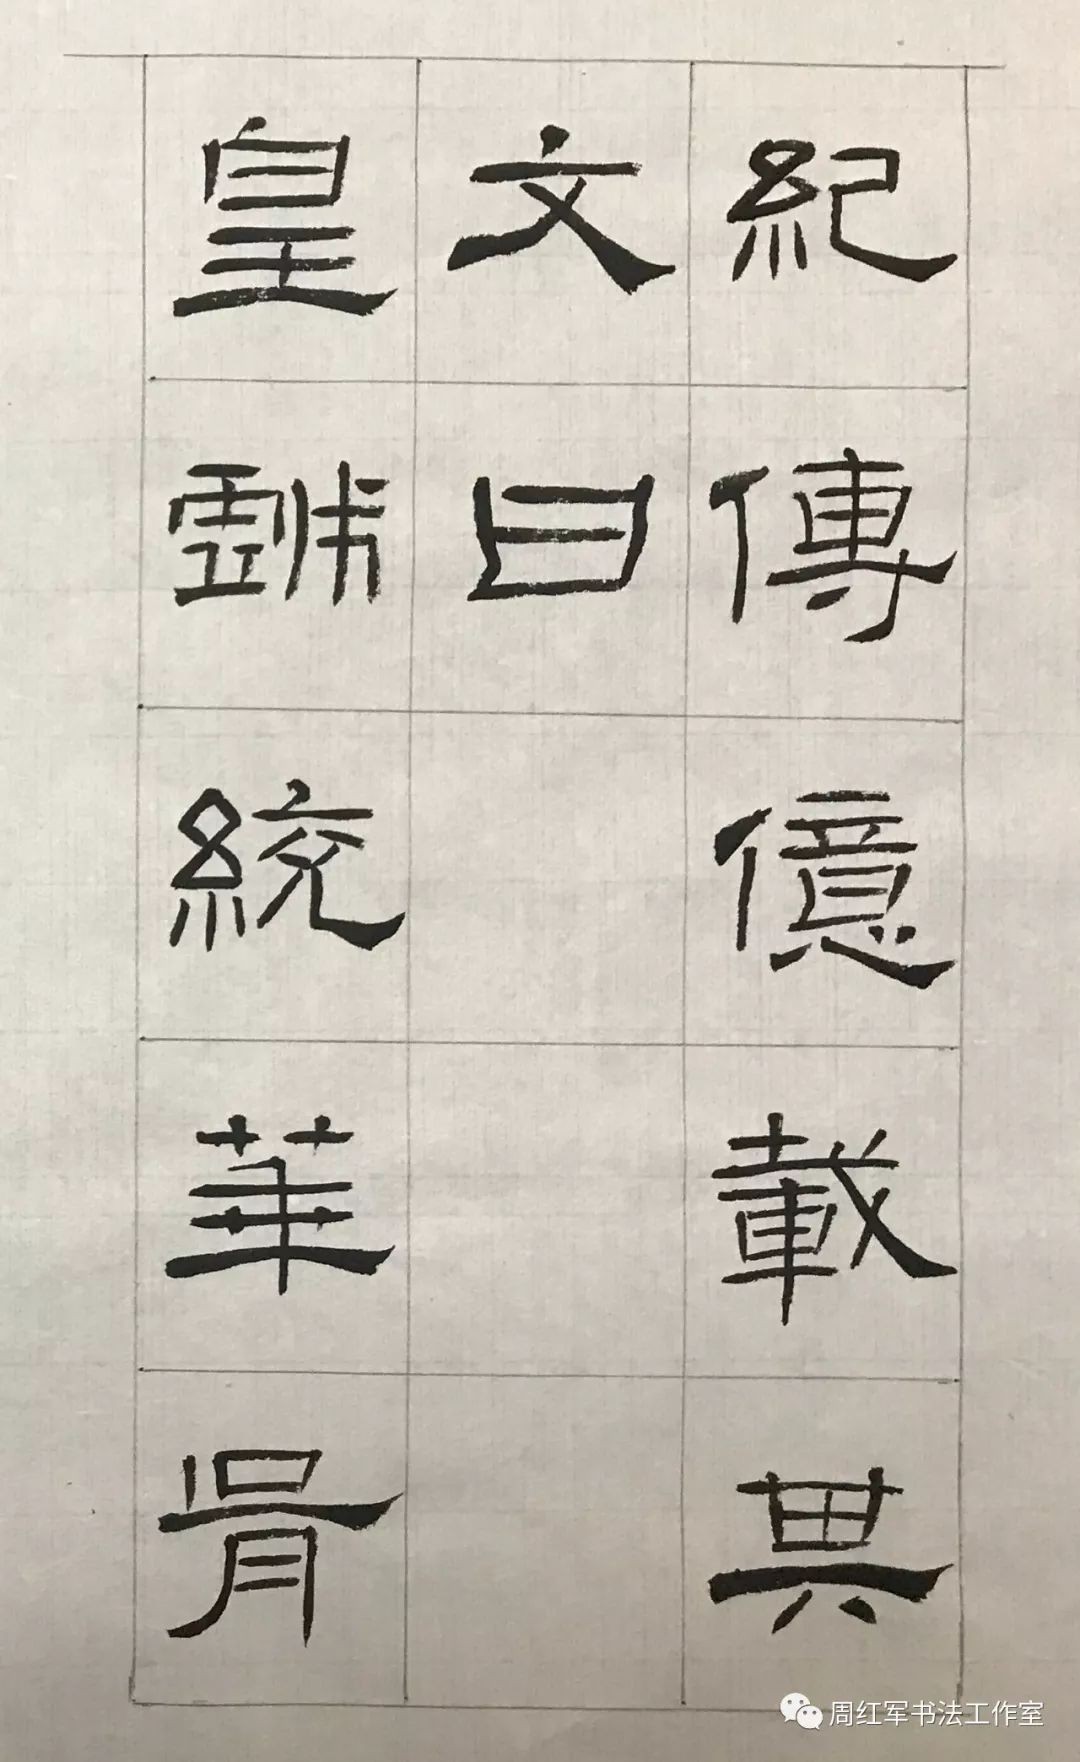 紀傳億載其
文曰
皇戲統華胥
周红军书法工作室